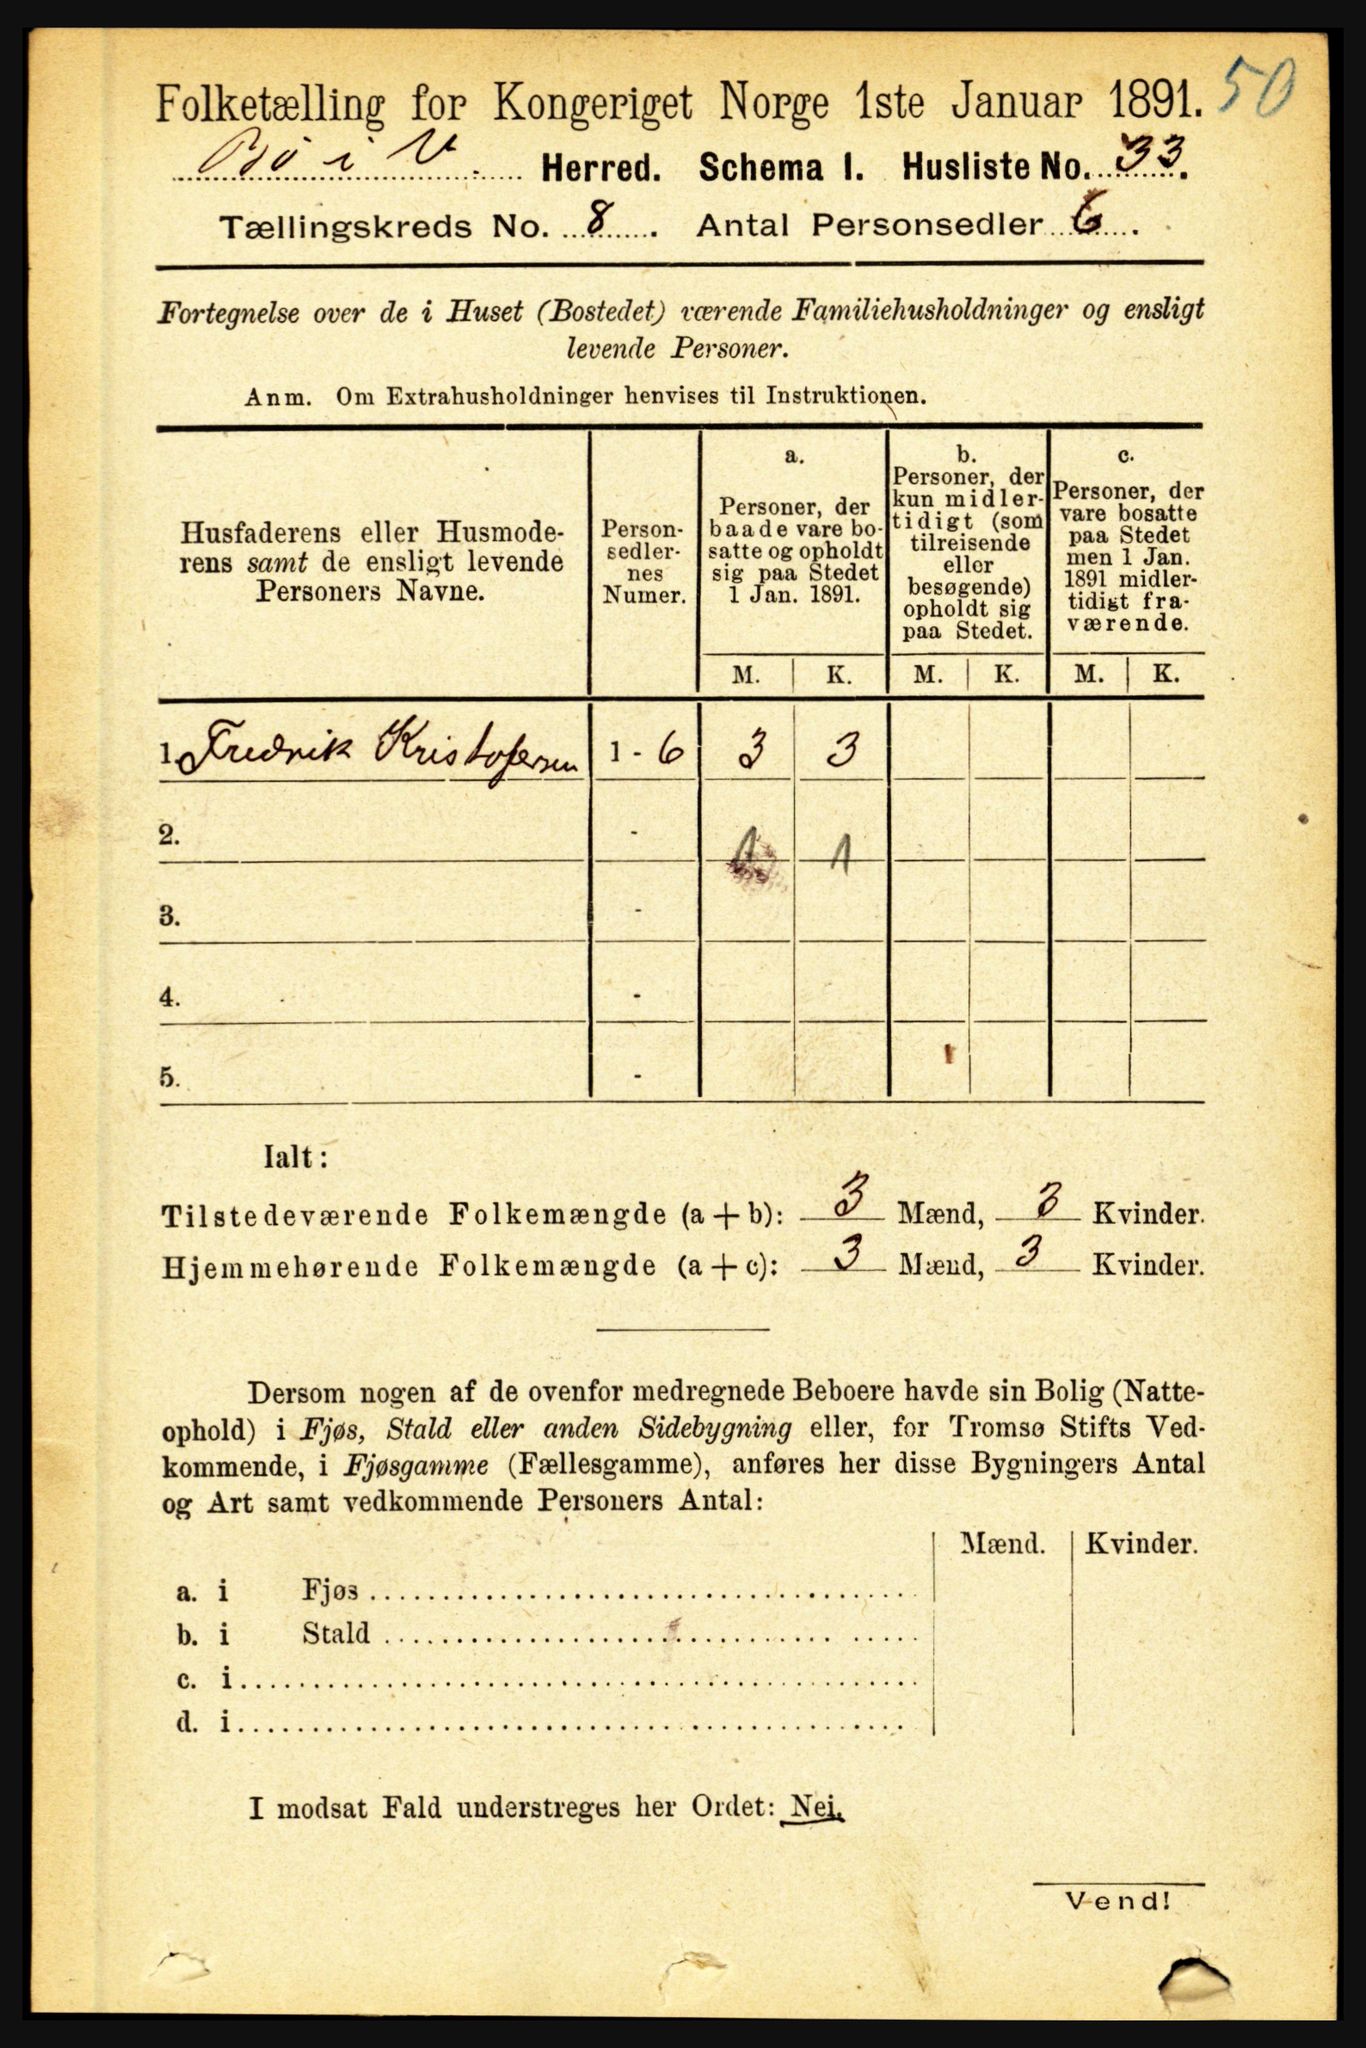 50
Folketælling for Kongeriget Norge 1ste Januar 1891.
Bö i V. Herred. Schema I. Husliste No. 33.
Tællingskreds No. 8. Antal Personsedler 6.
Fortegnelse over de i Huset (Bostedet) værende Familiehusholdninger og ensligt
levende Personer.
Anm. Om Extrahusholdninger henvises til Instruktionen.
Husfaderens eller Husmode-
rens samt de ensligt levende
Personers Navne.
Person-
sedler-
nes
Numer.
a.
Personer, der
baade vare bo-
satte og opholdt
sig paa Stedet
1 Jan. 1891.
b.
Personer, der
kun midler-
tidigt (som
tilreisende
eller
besøgende)
opholdt sig
paa Stedet.
c.
Personer, der
vare bosatte
paa Stedet
men 1 Jan.
1891 midler-
tidigt fra-
værende.
M. K. M. K. M. K.
1. Fredrik Kristofersen 1 - 6 3 3
2. - 1 1
3. -
4. -
5. -
Ialt:
Tilstedeværende Folkemængde (a + b): 3 Mænd, 3 Kvinder.
Hjemmehørende Folkemængde (a + c): 3 Mænd, 3 Kvinder.
Dersom nogen af de ovenfor medregnede Beboere havde sin Bolig (Natte-
ophold) i Fjøs, Stald eller anden Sidebygning eller, for Tromsø Stifts Ved-
kommende, i Fjøsgamme (Fællesgamme), anføres her disse Bygningers Antal
og Art samt vedkommende Personers Antal:
Mænd. Kvinder.
a. i Fjøs
b. i Stald
c. i
d. i
I modsat Fald understreges her Ordet: Nei.
Vend!